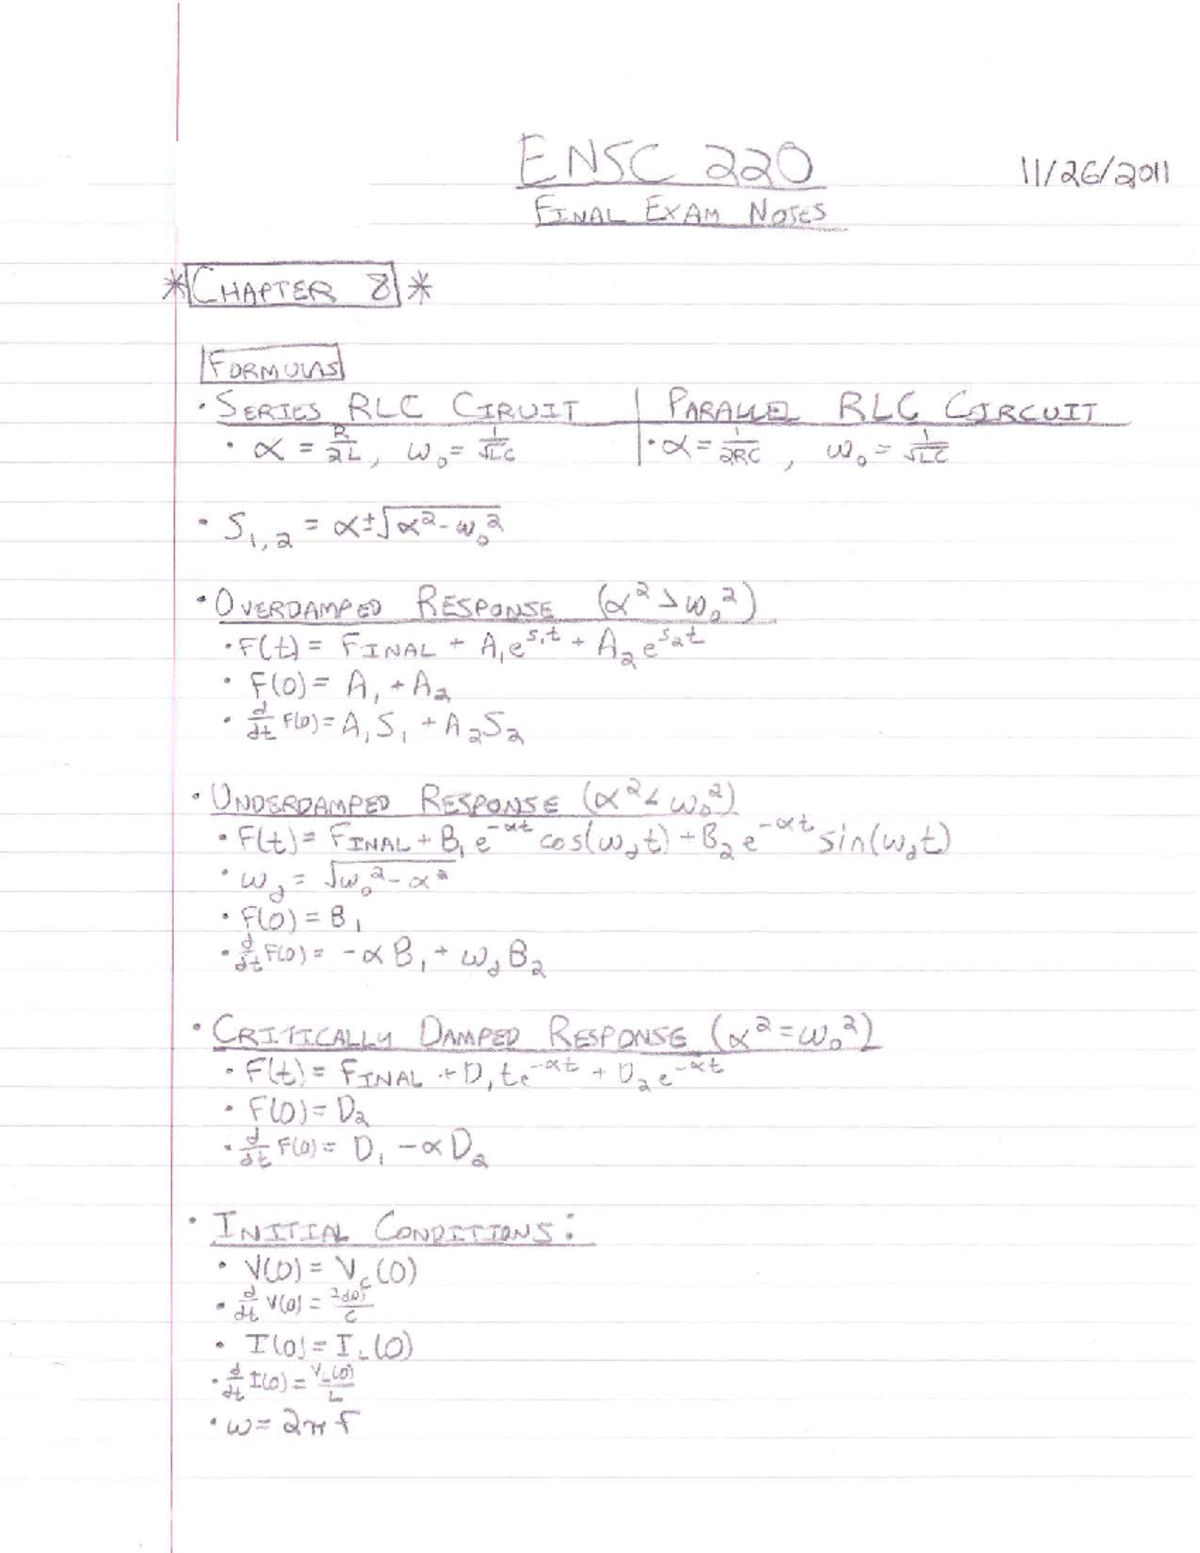 ENSC 220
11/26/2011
FINAL EXAM NOTES
*CHAPTER 8*
FORMULAS
• SERIES RLC CIRUIT | PARALLEL RLC CIRCUIT
• α = R/2L, ω₀ = 1/√LC | • α = 1/2RC, ω₀ = 1/√LC
• S₁,₂ = α ± √(α² - ω₀²)
• OVERDAMPED RESPONSE (α² > ω₀²)
• F(t) = FINAL + A₁e^(s₁t) + A₂e^(s₂t)
• F(0) = A₁ + A₂
• d/dt F(0) = A₁S₁ + A₂S₂
• UNDERDAMPED RESPONSE (α² < ω₀²)
• F(t) = FINAL + B₁e^(-αt) cos(ω_d t) + B₂e^(-αt) sin(ω_d t)
• ω_d = √(ω₀² - α²)
• F(0) = B₁
• d/dt F(0) = -αB₁ + ω_d B₂
• CRITICALLY DAMPED RESPONSE (α² = ω₀²)
• F(t) = FINAL + D₁te^(-αt) + D₂e^(-αt)
• F(0) = D₂
• d/dt F(0) = D₁ - αD₂
• INITIAL CONDITIONS:
• V(0) = V_c(0)
• d/dt V(0) = I_c(0)/C
• I(0) = I_L(0)
• d/dt I(0) = V_L(0)/L
• ω = 2πf